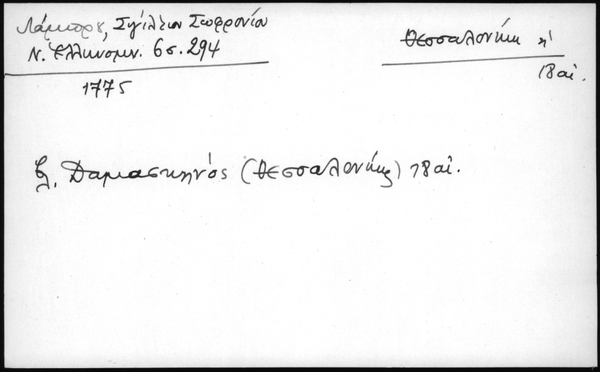 Λάμπρου, Σιγίλλιον Σωφρονίου
Ν. Ἑλληνομν. 6σ. 294
1775
Θεσσαλονίκη
18 αἰ.
Δαμασκηνός (Θεσσαλονίκης) 18 αἰ.